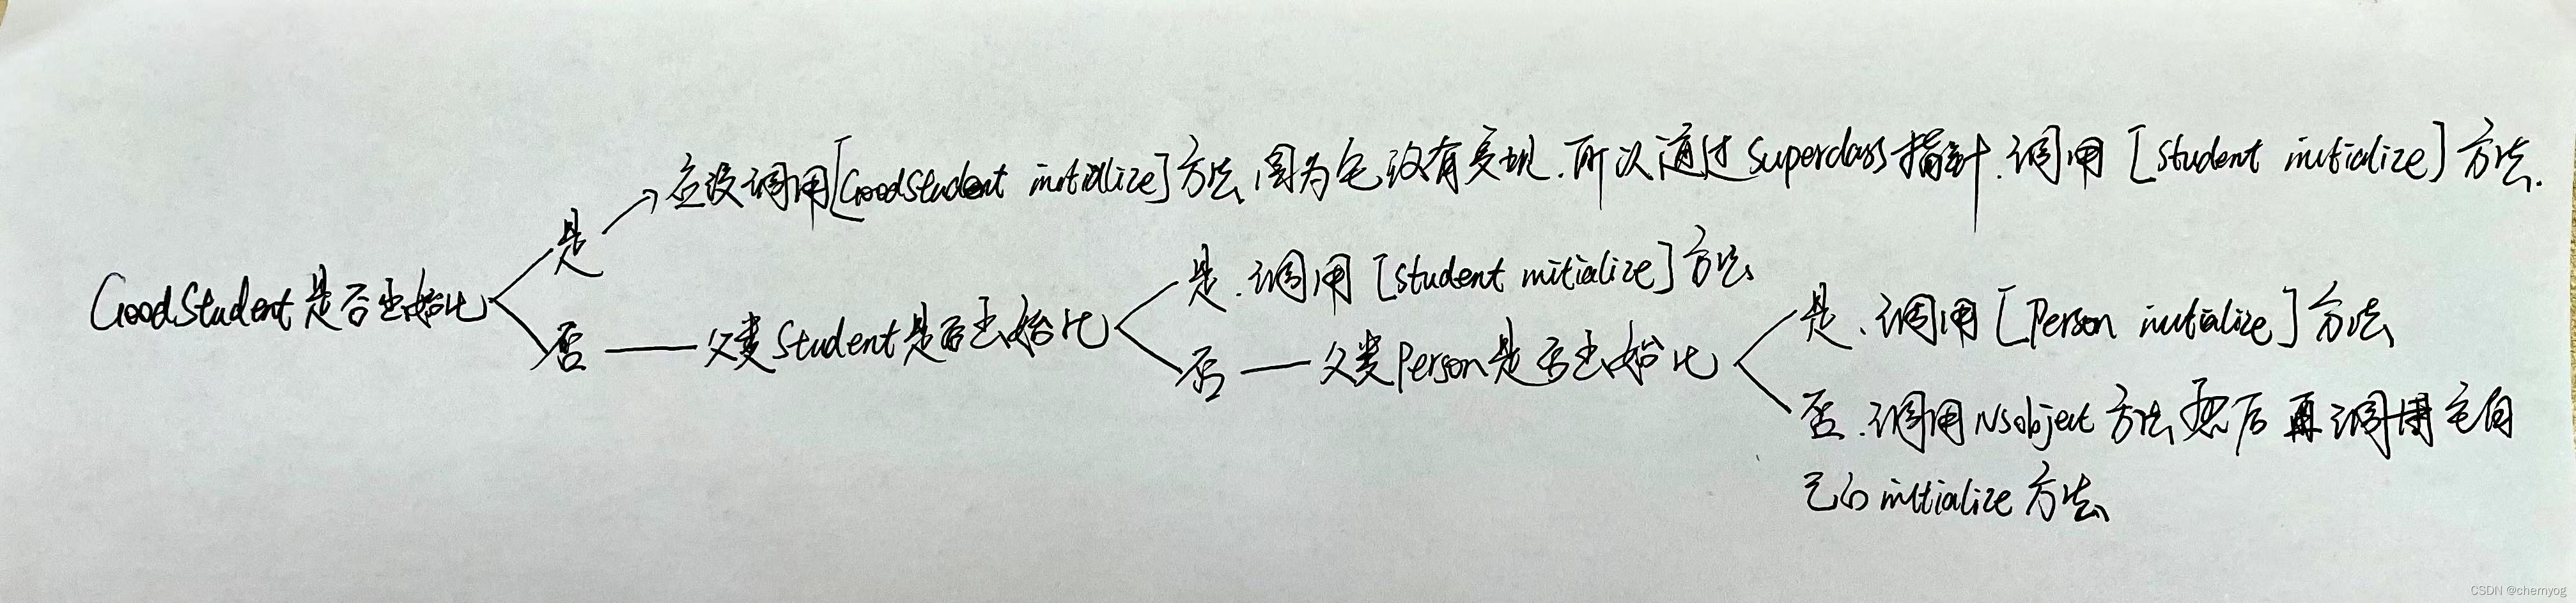 应该调用[GoodStudent initiallize]方法,因为它没有实现.所以通过superclass指针.调用[Student initialize]方法.
是
GoodStudent是否初始化
否
父类Student是否初始化
是.调用[Student initialize]方法
否
父类Person是否初始化
是.调用[Person initialize]方法
否.调用NSobject方法,然后再调用它自
己的initialize方法
CSDN @chernyog